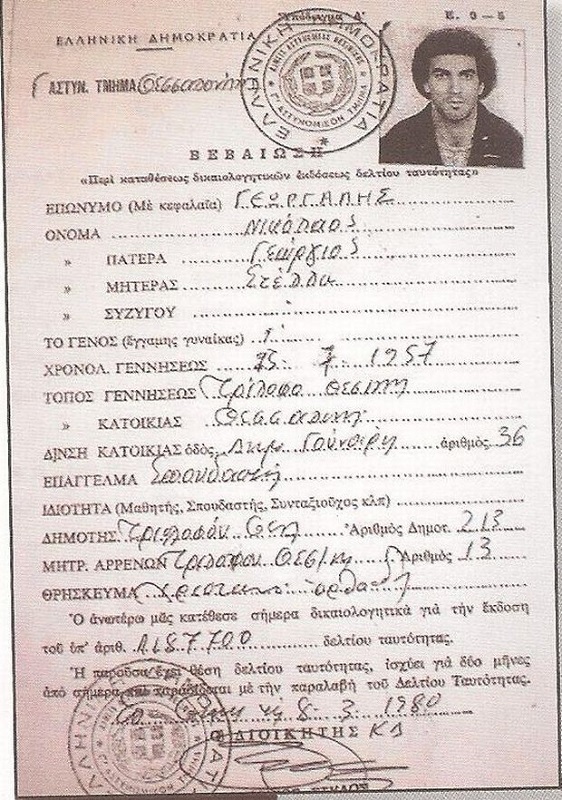 Ὑπόδειγμα Δ'
Ε. 9-5
ΕΛΛΗΝΙΚΗ ΔΗΜΟΚΡΑΤΙΑ
ΑΣΤΥΝ. ΤΜΗΜΑ Θεσσαλονίκη
ΕΛΛΗΝΙΚΗ ΔΗΜΟΚΡΑΤΙΑ
ΒΕΒΑΙΩΣΗ
«Περὶ καταθέσεως δικαιολογητικῶν ἐκδόσεως δελτίου ταυτότητας»
ΕΠΩΝΥΜΟ (Μὲ κεφαλαῖα) ΓΕΩΡΓΑΛΗΣ
ΟΝΟΜΑ Νικόλαος
» ΠΑΤΕΡΑ Γεώργιος
» ΜΗΤΕΡΑΣ Στέλλα
» ΣΥΖΥΓΟΥ
ΤΟ ΓΕΝΟΣ (ἔγγαμης γυναίκας)
ΧΡΟΝΟΛ. ΓΕΝΝΗΣΕΩΣ 25- 7- 1957
ΤΟΠΟΣ ΓΕΝΝΗΣΕΩΣ Τρίλοφο Θεσ/νίκη
» ΚΑΤΟΙΚΙΑΣ Θεσσαλονίκη
Δ)ΝΣΗ ΚΑΤΟΙΚΙΑΣ ὁδὸς Δημ. Γούναρη ἀριθμὸς 36
ΕΠΑΓΓΕΛΜΑ Σπουδαστή
ΙΔΙΟΤΗΤΑ (Μαθητής, Σπουδαστής, Συνταξιοῦχος κλπ)
ΔΗΜΟΤΗΣ Τριλόφου Θεσ Ἀριθμὸς Δημοτ. 213
ΜΗΤΡ. ΑΡΡΕΝΩΝ Τριλόφου Θεσ/νίκη Ἀριθμὸς 13
ΘΡΗΣΚΕΥΜΑ Χριστιανὸ ὀρθόδοξο
Ὁ ἀνωτέρω μᾶς κατέθεσε σήμερα δικαιολογητικὰ γιὰ τὴν ἔκδοση
τοῦ ὑπ' ἀριθ. Α187700 δελτίου ταυτότητας.
Ἡ παροῦσα ἔχει θέση δελτίου ταυτότητας, ἰσχύει γιὰ δύο μῆνες
ἀπὸ σήμερα καὶ παραδίδεται μὲ τὴν παραλαβὴ τοῦ Δελτίου Ταυτότητας.
τῇ 8-3-1980
Ο ΔΙΟΙΚΗΤΗΣ ΚΔ